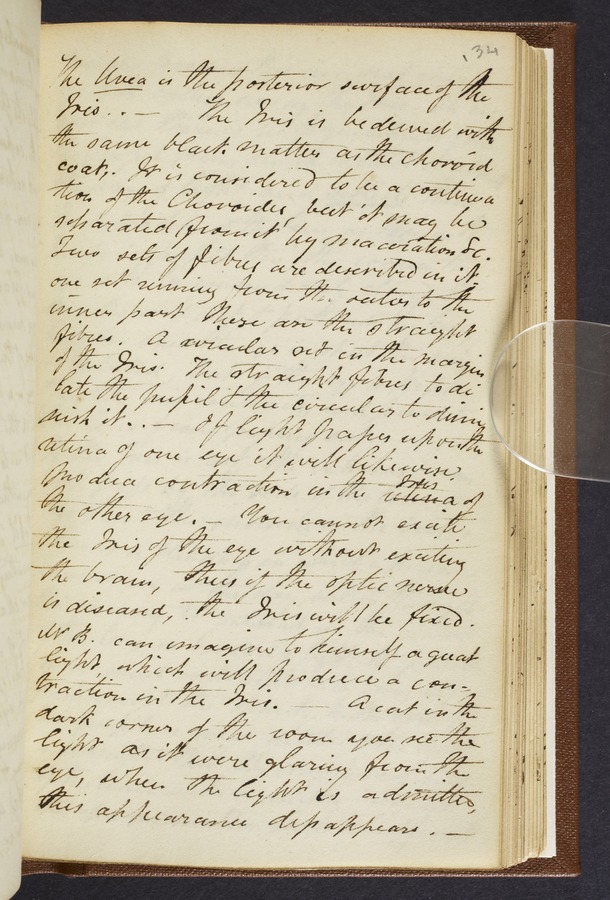 134
The Uvea is the posterior surface of the
Iris. . — The Iris is bedewed with
the same black matter as the choroid
coat,. It is considered to be a continua
tion of the Choroides, but it may be
separated from it by maceration &c.
Two sets of fibres are described in it,
one set running from the outer to the
inner part these are the straight
fibres. A circular set in the margin
of the Iris. The straight fibres to di
late the pupil & the circular to dimi
nish it. . — If light passes upon the
retina of one eye it will likewise
produce contraction in the retina Iris of
the other eye. — You cannot excite
the Iris of the eye without exciting
the brain, thus if the optic nerve
is diseased, the Iris will be fixed.
Mr B. can imagine to himself a great
light which will produce a con-
traction in the Iris. — A cat in the
dark corner of the room you see the
light as it were glaring from the
eye, when the light is admitted,
this appearance disappears. —